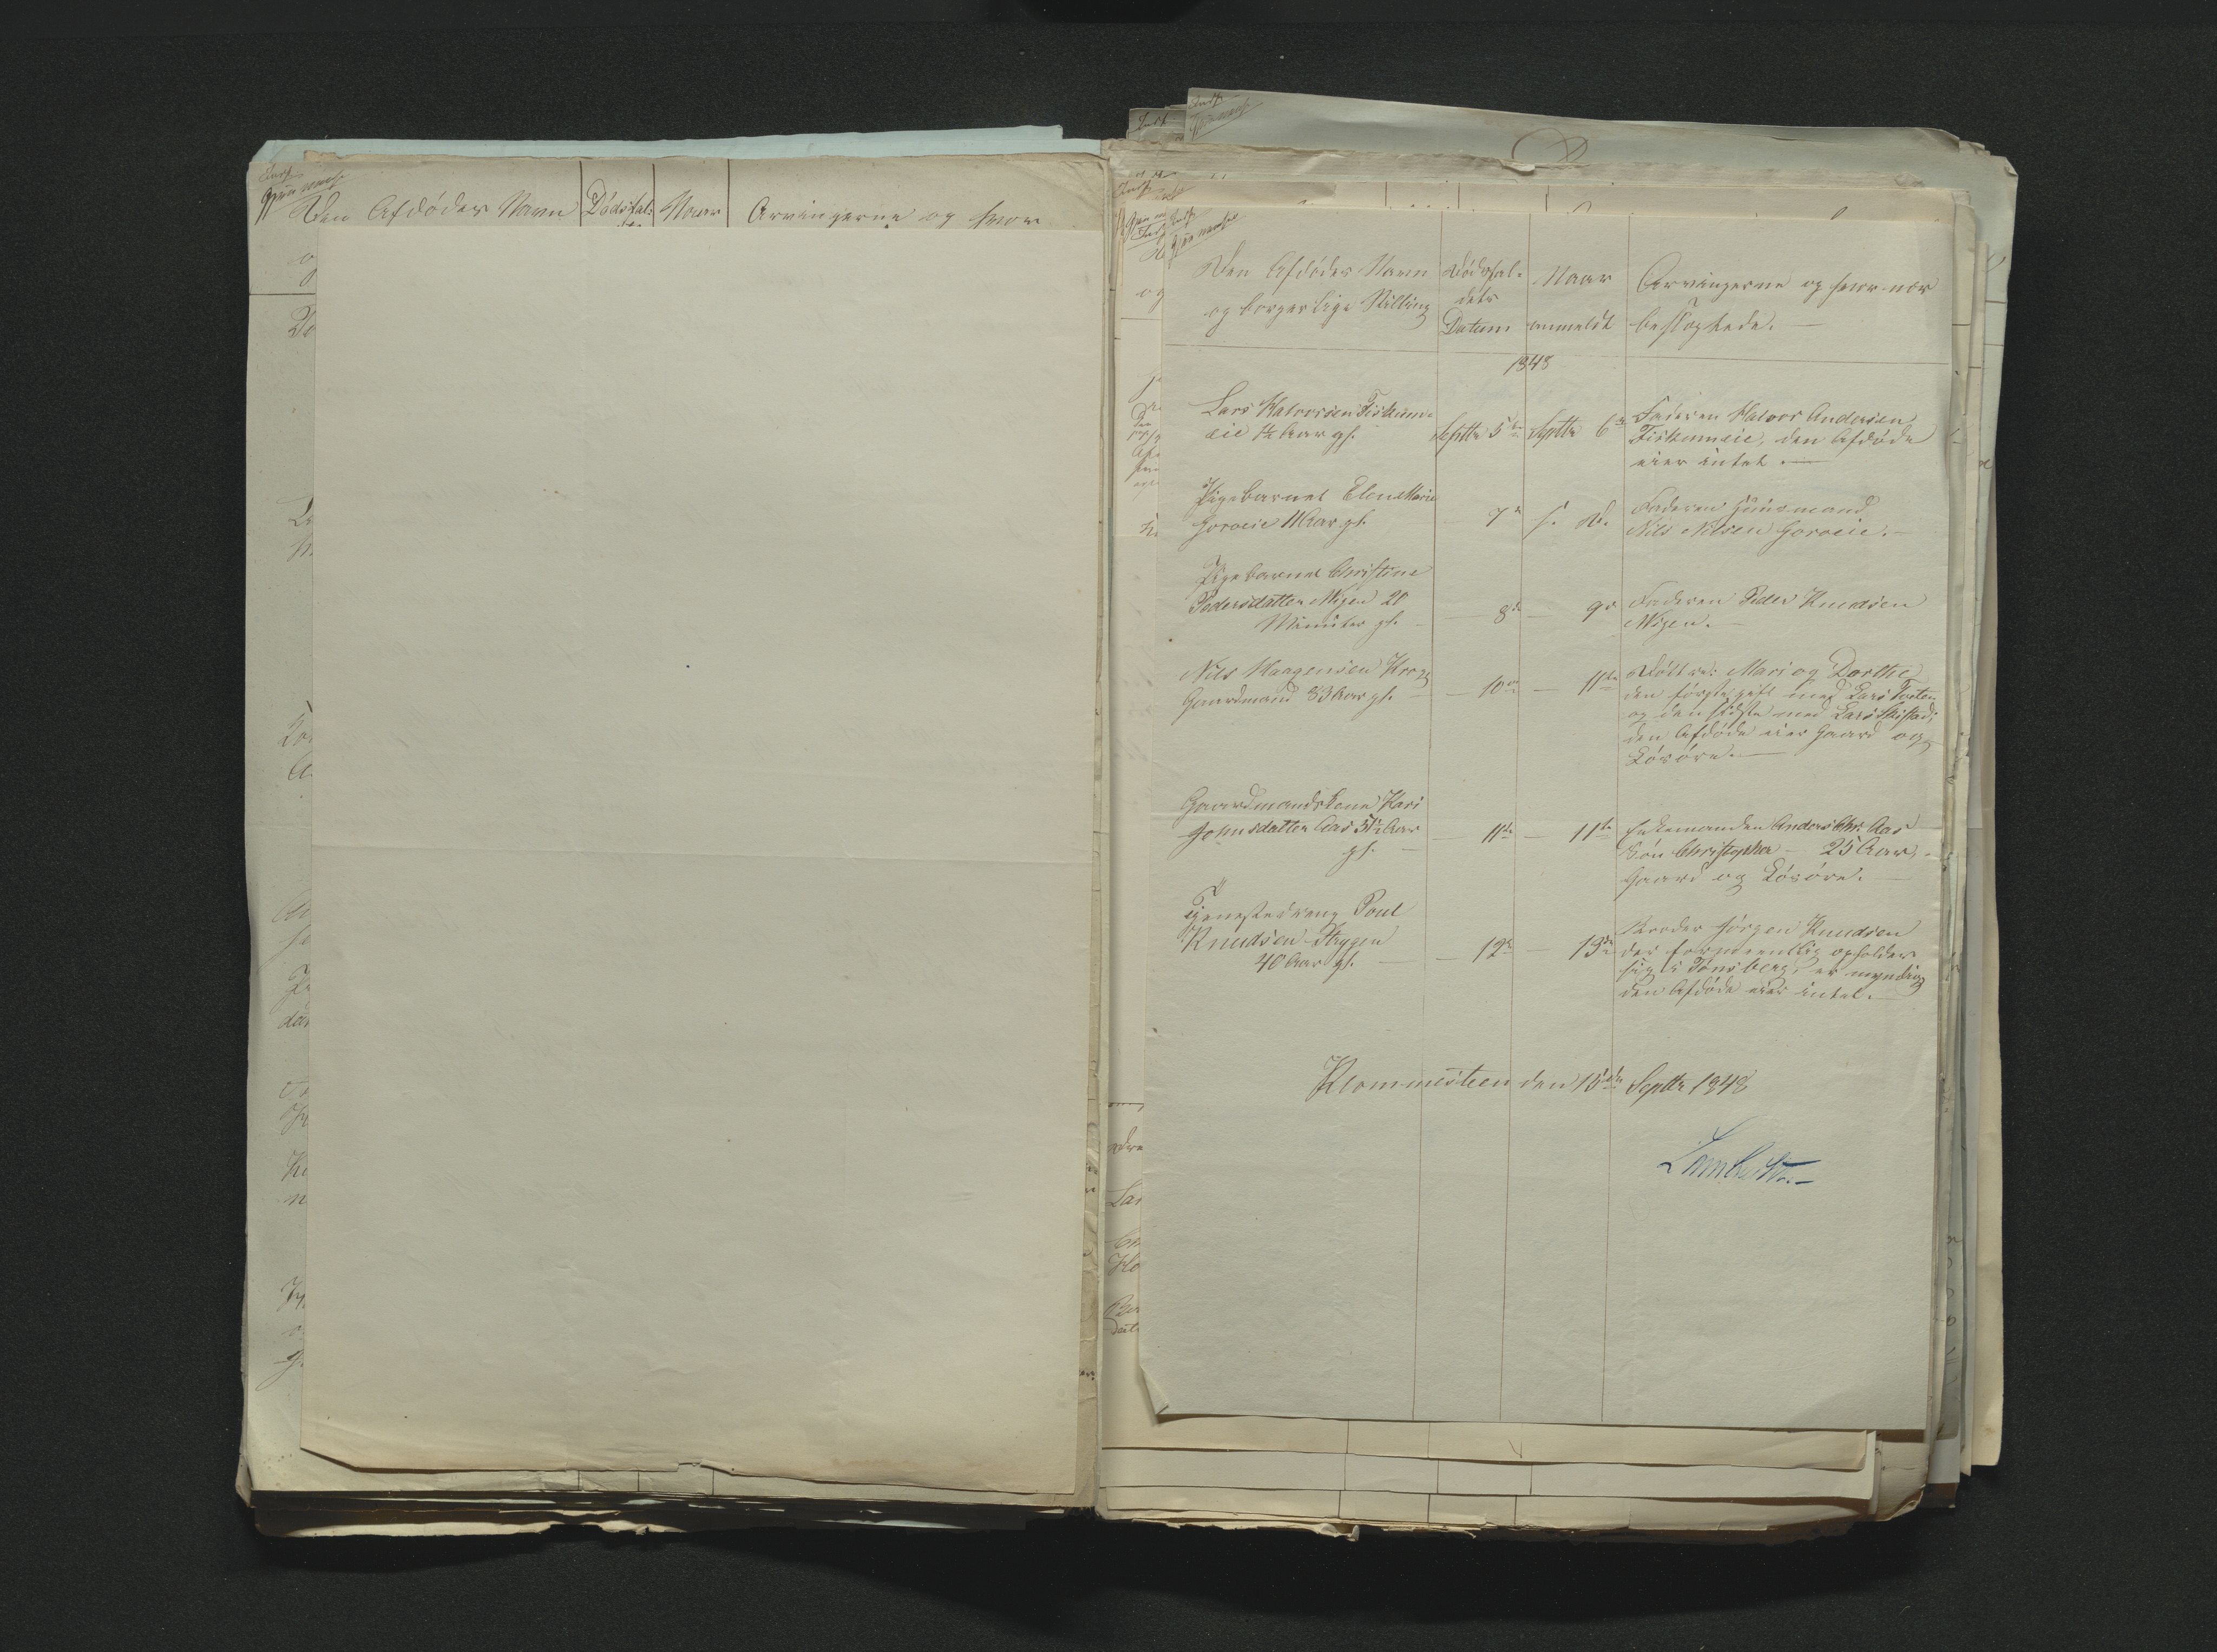 Den Afdødes Navn
Dødsfal-
Naar
Arvingerne og hvor
Den Afdødes Navn
og borgerlige Stilling
Dødsfal-
dets
Datum
Naar
anmeldt
Arvingerne og hvor nær
beslægtede. —
1848
Lars Halvorsen Fiskum-
eie ½ Aar gl.
Septbr 5te
Septbr 6te
Faderen Halvor Andersen
Fiskumeie, den Afdøde
eier intet. —
Pigebarnet Elen Marie
Goroeie 11 Aar gl.
— 7de
s. D.
Faderen Huusmand
Nils Nilsen Goroeie. —
Pigebarnet Christine
Pedersdatter Wigen 20
Minuter gl. —
— 8de
— 9de
Faderen Peder Knudsen
Wigen. —
Nils Haagensen Krog
Gaardmand 83 Aar gl. —
— 10de
— 11te
Døttre: Mari og Dorthe
den første gift med Lars Foeten
og den sidste med Lars Skistad;
den Afdøde eier Gaard og
Løsøre. —
Gaardmandskone Kari
Johnsdatter Aas 51½ Aar
gl. —
— 11te
— 11te
Enkemanden Anders Chr. Aas
Søn Christopher — 25 Aar, -
Gaard og Løsøre. —
Tjenestedreng Poul
Knudsen Strygen
40 Aar gl. —
— 12te
— 13de
Broder Jørgen Knudsen
der formeentlig opholder
sig i Tønsberg, er myndig
den Afdøde eier intet. —
Krommesteen den 15de Septbr 1848